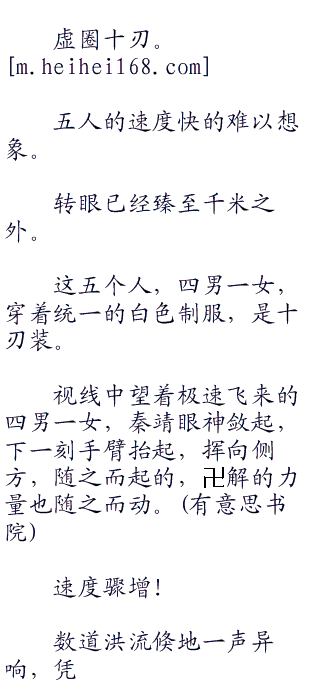 虚圈十刃。
[m.heihei168.com]
五人的速度快的难以想
象。
转眼已经臻至千米之
外。
这五个人，四男一女，
穿着统一的白色制服，是十
刃装。
视线中望着极速飞来的
四男一女，秦靖眼神敛起，
下一刻手臂抬起，挥向侧
方，随之而起的，卍解的力
量也随之而动。(有意思书
院)
速度骤增！
数道洪流倏地一声异
响，凭